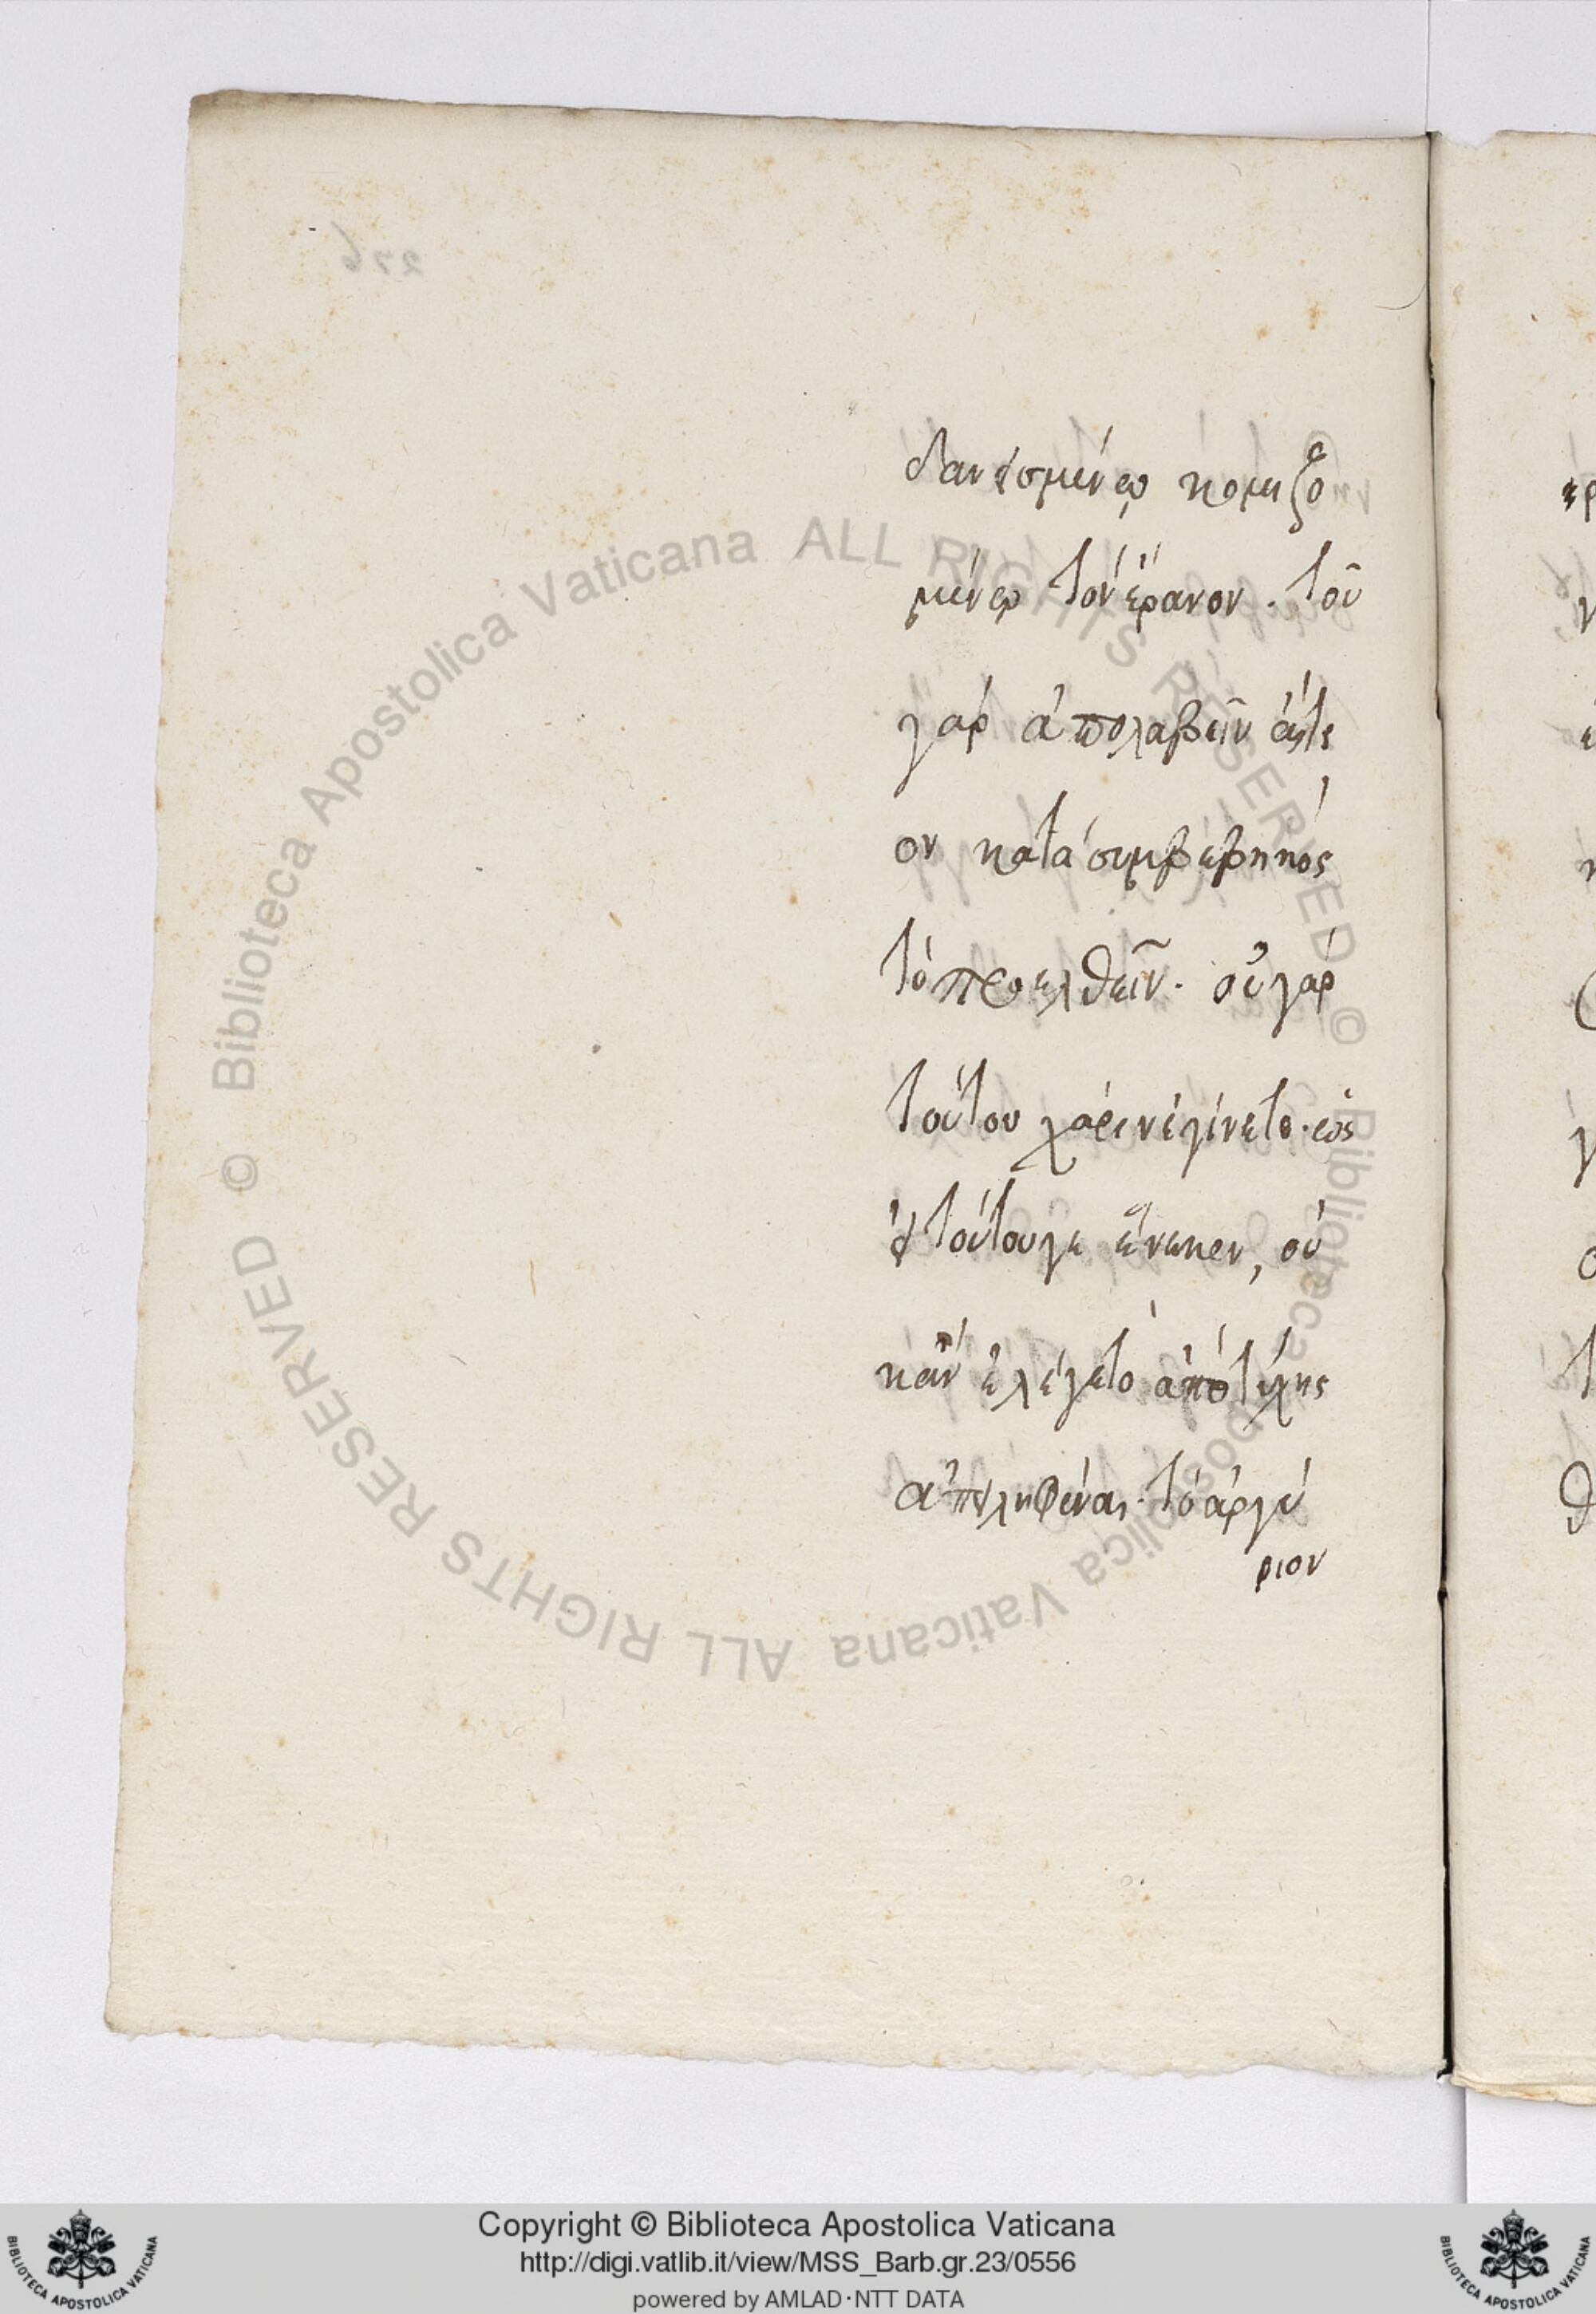 δανεισμένῳ κομιζο
μένῳ τὸν ἔρανον. τοῦ
γὰρ ἀπολαβεῖν αἴτι
ον κατὰ συμβεβηκός,
τὸ προελθεῖν. οὐ γὰρ
τούτου χάριν ἐγίνετο. ὡς
εἰ τούτου γε ἕνεκεν, οὐ
κἂν ἐλέγετο ἀπὸ τύχης
ἀπειληφέναι τὸ ἀργύ
ριον
Copyright © Biblioteca Apostolica Vaticana
http://digi.vatlib.it/view/MSS_Barb.gr.23/0556
powered by AMLAD·NTT DATA
© Biblioteca Apostolica Vaticana ALL RIGHTS RESERVED
© Biblioteca Apostolica Vaticana ALL RIGHTS RESERVED
BIBLIOTECA APOSTOLICA VATICANA
BIBLIOTECA APOSTOLICA VATICANA